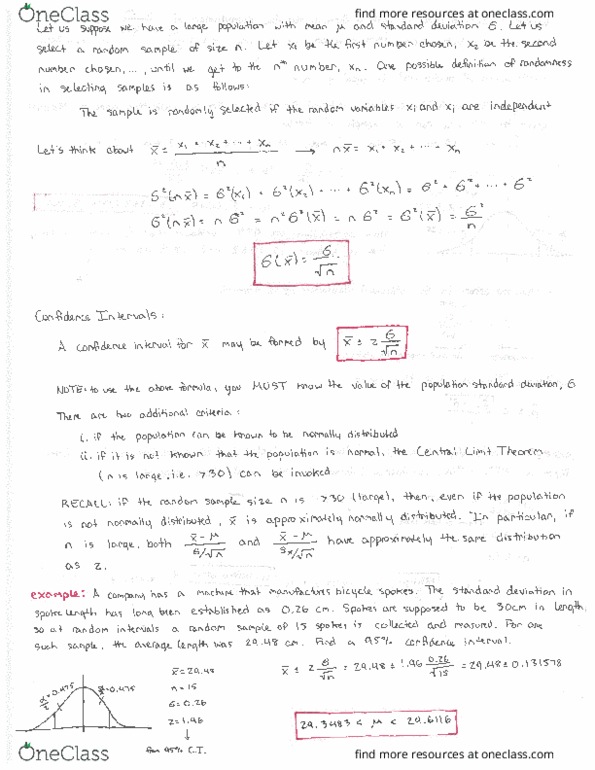 OneClass
find more resources at oneclass.com
Let us suppose we have a large population with mean μ and standard deviation σ. Let us
select a random sample of size n. Let x₁ be the first number chosen, x₂ be the second
number chosen, ..., until we get to the nᵗʰ number, xₙ. One possible definition of randomness
in selecting samples is as follows:
The sample is randomly selected if the random variables xᵢ and xⱼ are independent
Let's think about x̄ = (x₁ + x₂ + ... + xₙ)/n → nx̄ = x₁ + x₂ + ... + xₙ
σ²(nx̄) = σ²(x₁) + σ²(x₂) + ... + σ²(xₙ) = σ² + σ² + ... + σ²
σ²(nx̄) = nσ² = n²σ²(x̄) = nσ² = σ²(x̄) = σ²/n
σ(x̄) = σ/√n
Confidence Intervals:
A confidence interval for x̄ may be formed by x̄ ± z σ/√n
NOTE: to use the above formula, you MUST know the value of the population standard deviation, σ
There are two additional criteria:
i. if the population can be known to be normally distributed
ii. if it is not known that the population is normal, the Central Limit Theorem
(n is large, i.e. >30) can be invoked
RECALL: if the random sample size n is >30 (large), then, even if the population
is not normally distributed, x̄ is approximately normally distributed. In particular, if
n is large, both (x̄-μ)/(σ/√n) and (x̄-μ)/(sₓ/√n) have approximately the same distribution
as z.
example: A company has a machine that manufactures bicycle spokes. The standard deviation in
spoke length has long been established as 0.26 cm. Spokes are supposed to be 30cm in length,
so at random intervals a random sample of 15 spokes is collected and measured. For one
such sample, the average length was 29.48 cm. Find a 95% confidence interval.
x̄ = 29.48
x̄ ± z σ/√n = 29.48 ± 1.96 0.26/√15 = 29.48 ± 0.131578
n = 15
σ = 0.26
z = 1.96
0.475
0.475
for 95% C.I.
29.3483 < μ < 29.6116
OneClass
find more resources at oneclass.com